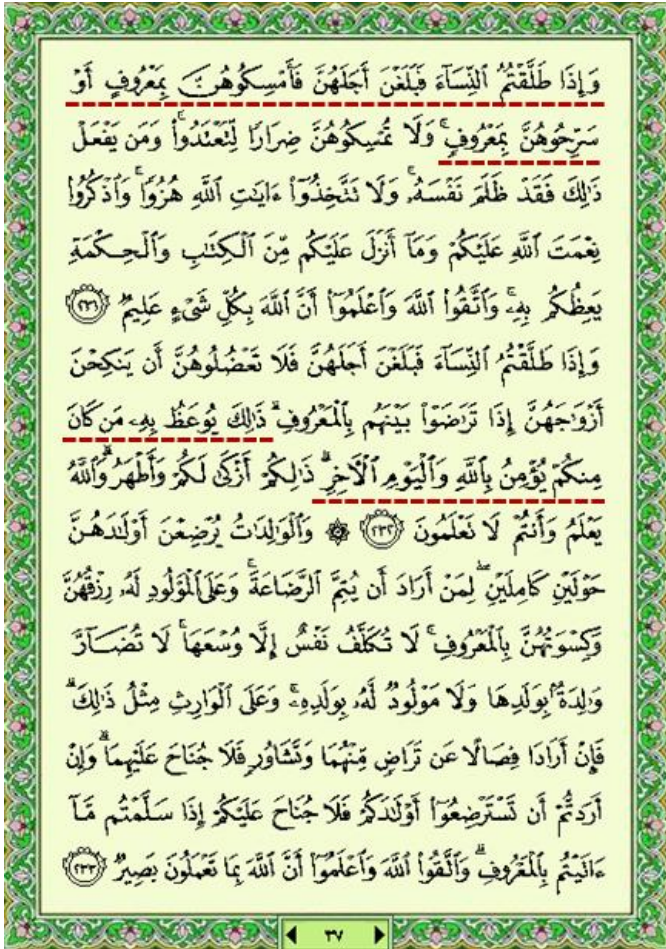 وَإِذَا طَلَّقْتُمُ ٱلنِّسَآءَ فَبَلَغْنَ أَجَلَهُنَّ فَأَمْسِكُوهُنَّ بِمَعْرُوفٍ أَوْ
سَرِّحُوهُنَّ بِمَعْرُوفٍ ۚ وَلَا تُمْسِكُوهُنَّ ضِرَارًا لِّتَعْتَدُوا۟ ۚ وَمَن يَفْعَلْ
ذَٰلِكَ فَقَدْ ظَلَمَ نَفْسَهُۥ ۚ وَلَا تَتَّخِذُوٓا۟ ءَايَٰتِ ٱللَّهِ هُزُوًا ۚ وَٱذْكُرُوا۟
نِعْمَتَ ٱللَّهِ عَلَيْكُمْ وَمَآ أَنزَلَ عَلَيْكُم مِّنَ ٱلْكِتَٰبِ وَٱلْحِكْمَةِ
يَعِظُكُم بِهِۦ ۚ وَٱتَّقُوا۟ ٱللَّهَ وَٱعْلَمُوٓا۟ أَنَّ ٱللَّهَ بِكُلِّ شَىْءٍ عَلِيمٌ ﴿٢٣١﴾
وَإِذَا طَلَّقْتُمُ ٱلنِّسَآءَ فَبَلَغْنَ أَجَلَهُنَّ فَلَا تَعْضُلُوهُنَّ أَن يَنكِحْنَ
أَزْوَٰجَهُنَّ إِذَا تَرَٰضَوْا۟ بَيْنَهُم بِٱلْمَعْرُوفِ ۗ ذَٰلِكَ يُوعَظُ بِهِۦ مَن كَانَ
مِنكُمْ يُؤْمِنُ بِٱللَّهِ وَٱلْيَوْمِ ٱلْءَاخِرِ ۗ ذَٰلِكُمْ أَزْكَىٰ لَكُمْ وَأَطْهَرُ ۗ وَٱللَّهُ
يَعْلَمُ وَأَنتُمْ لَا تَعْلَمُونَ ﴿٢٣٢﴾ ۞ وَٱلْوَٰلِدَٰتُ يُرْضِعْنَ أَوْلَٰدَهُنَّ
حَوْلَيْنِ كَامِلَيْنِ ۖ لِمَنْ أَرَادَ أَن يُتِمَّ ٱلرَّضَاعَةَ ۚ وَعَلَى ٱلْمَوْلُودِ لَهُۥ رِزْقُهُنَّ
وَكِسْوَتُهُنَّ بِٱلْمَعْرُوفِ ۚ لَا تُكَلَّفُ نَفْسٌ إِلَّا وُسْعَهَا ۚ لَا تُضَآرَّ
وَٰلِدَةٌۢ بِوَلَدِهَا وَلَا مَوْلُودٌ لَّهُۥ بِوَلَدِهِۦ ۚ وَعَلَى ٱلْوَارِثِ مِثْلُ ذَٰلِكَ ۗ
فَإِنْ أَرَادَا فِصَالًا عَن تَرَاضٍ مِّنْهُمَا وَتَشَاوُرٍ فَلَا جُنَاحَ عَلَيْهِمَا ۗ وَإِنْ
أَرَدتُّمْ أَن تَسْتَرْضِعُوٓا۟ أَوْلَٰدَكُمْ فَلَا جُنَاحَ عَلَيْكُمْ إِذَا سَلَّمْتُم مَّآ
ءَاتَيْتُم بِٱلْمَعْرُوفِ ۗ وَٱتَّقُوا۟ ٱللَّهَ وَٱعْلَمُوٓا۟ أَنَّ ٱللَّهَ بِمَا تَعْمَلُونَ بَصِيرٌ ﴿٢٣٣﴾
٣٧